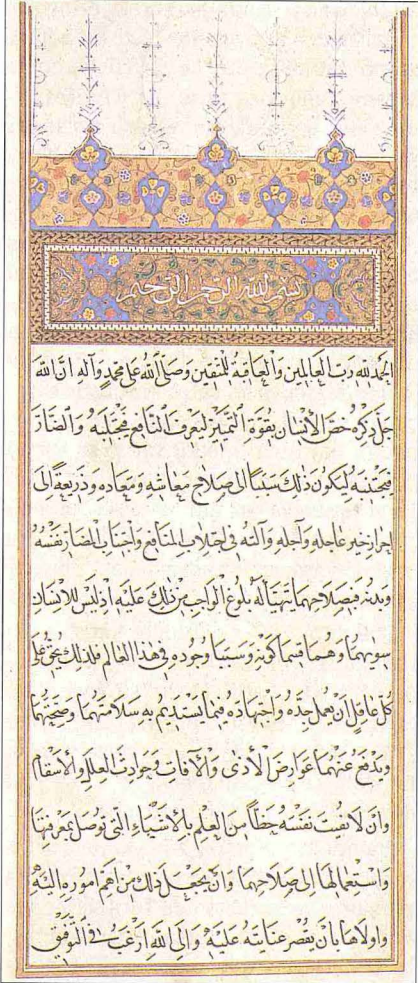 بسم الله الرحمن الرحيم
الحمد لله رب العالمين والعاقبة للمتقين وصلى الله على محمد وآله ان الله
جل ذكره خص الأنسان بقوة التمييز ليعرف المنافع فيجتلبه والضار
فيجتنبه ليكون ذلك سببا الى صلاح معاشه ومعاده وذريعة إلى
احراز خير عاجله وآجله وآلته في اجتلاب المنافع واجتناب المضار نفسه
وبدنه فبصلاحهما يتهيأ له بلوغ الواجب من ذلك عليه اذ ليس للانسان
سويهما وهما قسما كونه وسببا وجوده في هذا العالم فلذلك يحق على
كل عاقل أن يعمل جده واجتهاده فيما يستديم به سلامتهما وصحتهما
ويدفع عنهما عوارض الأذى والآفات وحوادث العلل والأسقام
وان لا تفيت نفسه حظا من العلم بالاشياء التي توصل بمعرفتها
واستعمالها إلى صلاحهما وان يجعل ذلك من اهم اموره اليه
واولاها بأن يقصر عنايته عليه وإلى الله ارغب في التوفيق